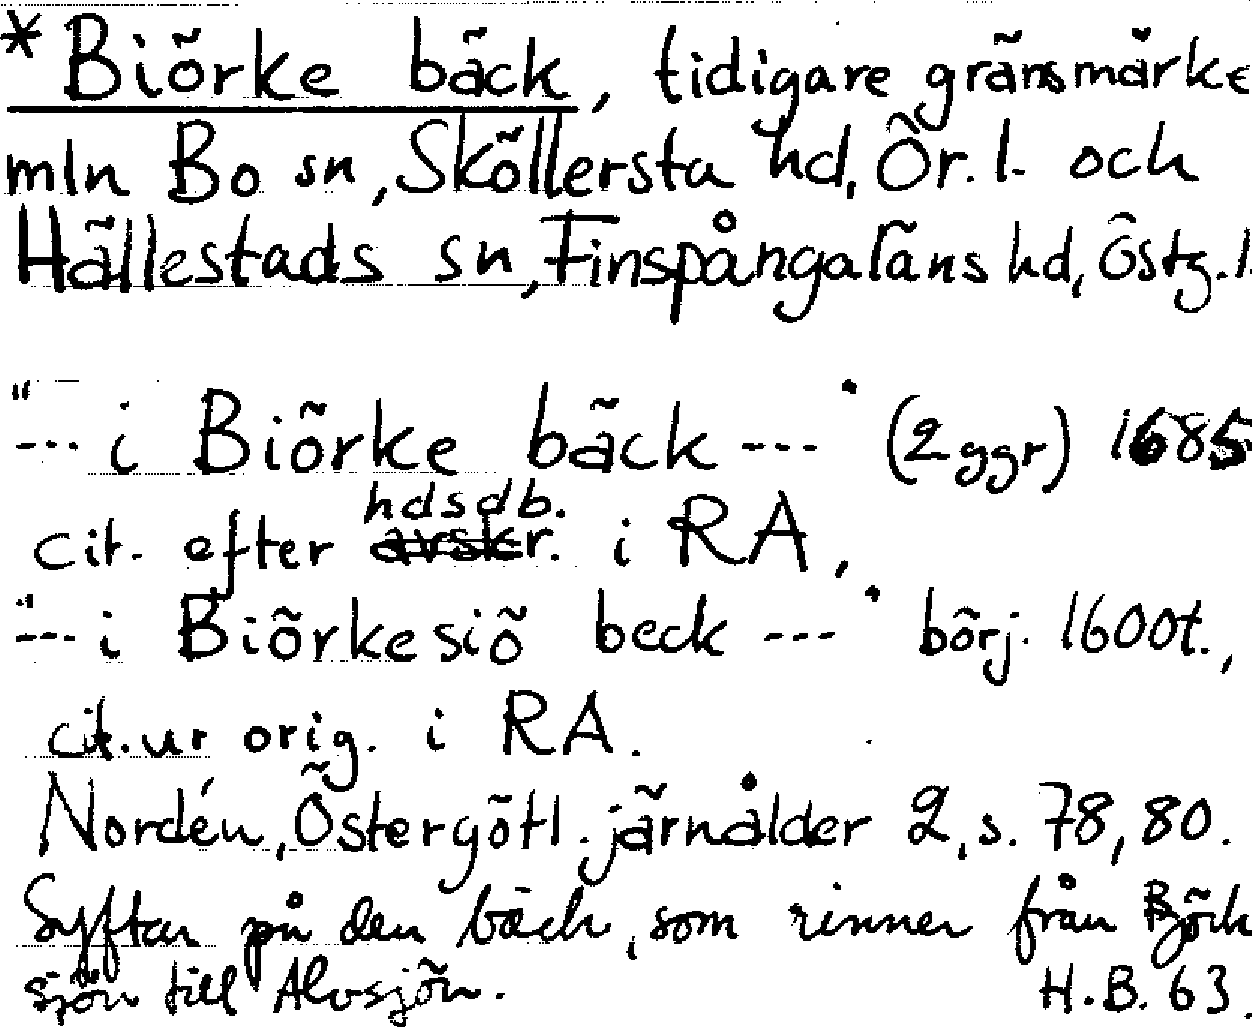 * Biörke bäck, tidigare gränsmärke
mln Bo sn, Sköllersta hd, Ör. l. och
Hällestads sn, Finspångaläns hd, Östg. l.
"--- i Biörke bäck ---" (2 ggr) 1685
cit. efter hdsdb. i RA,
"--- i Biörkesiö beck ---" börj. 1600t.,
cit. ur orig. i RA.
Nordén, Östergötl. järnålder 2, s. 78, 80.
Syftar på den bäck, som rinner från Björk
sjön till Alvsjön. H.B. 63.